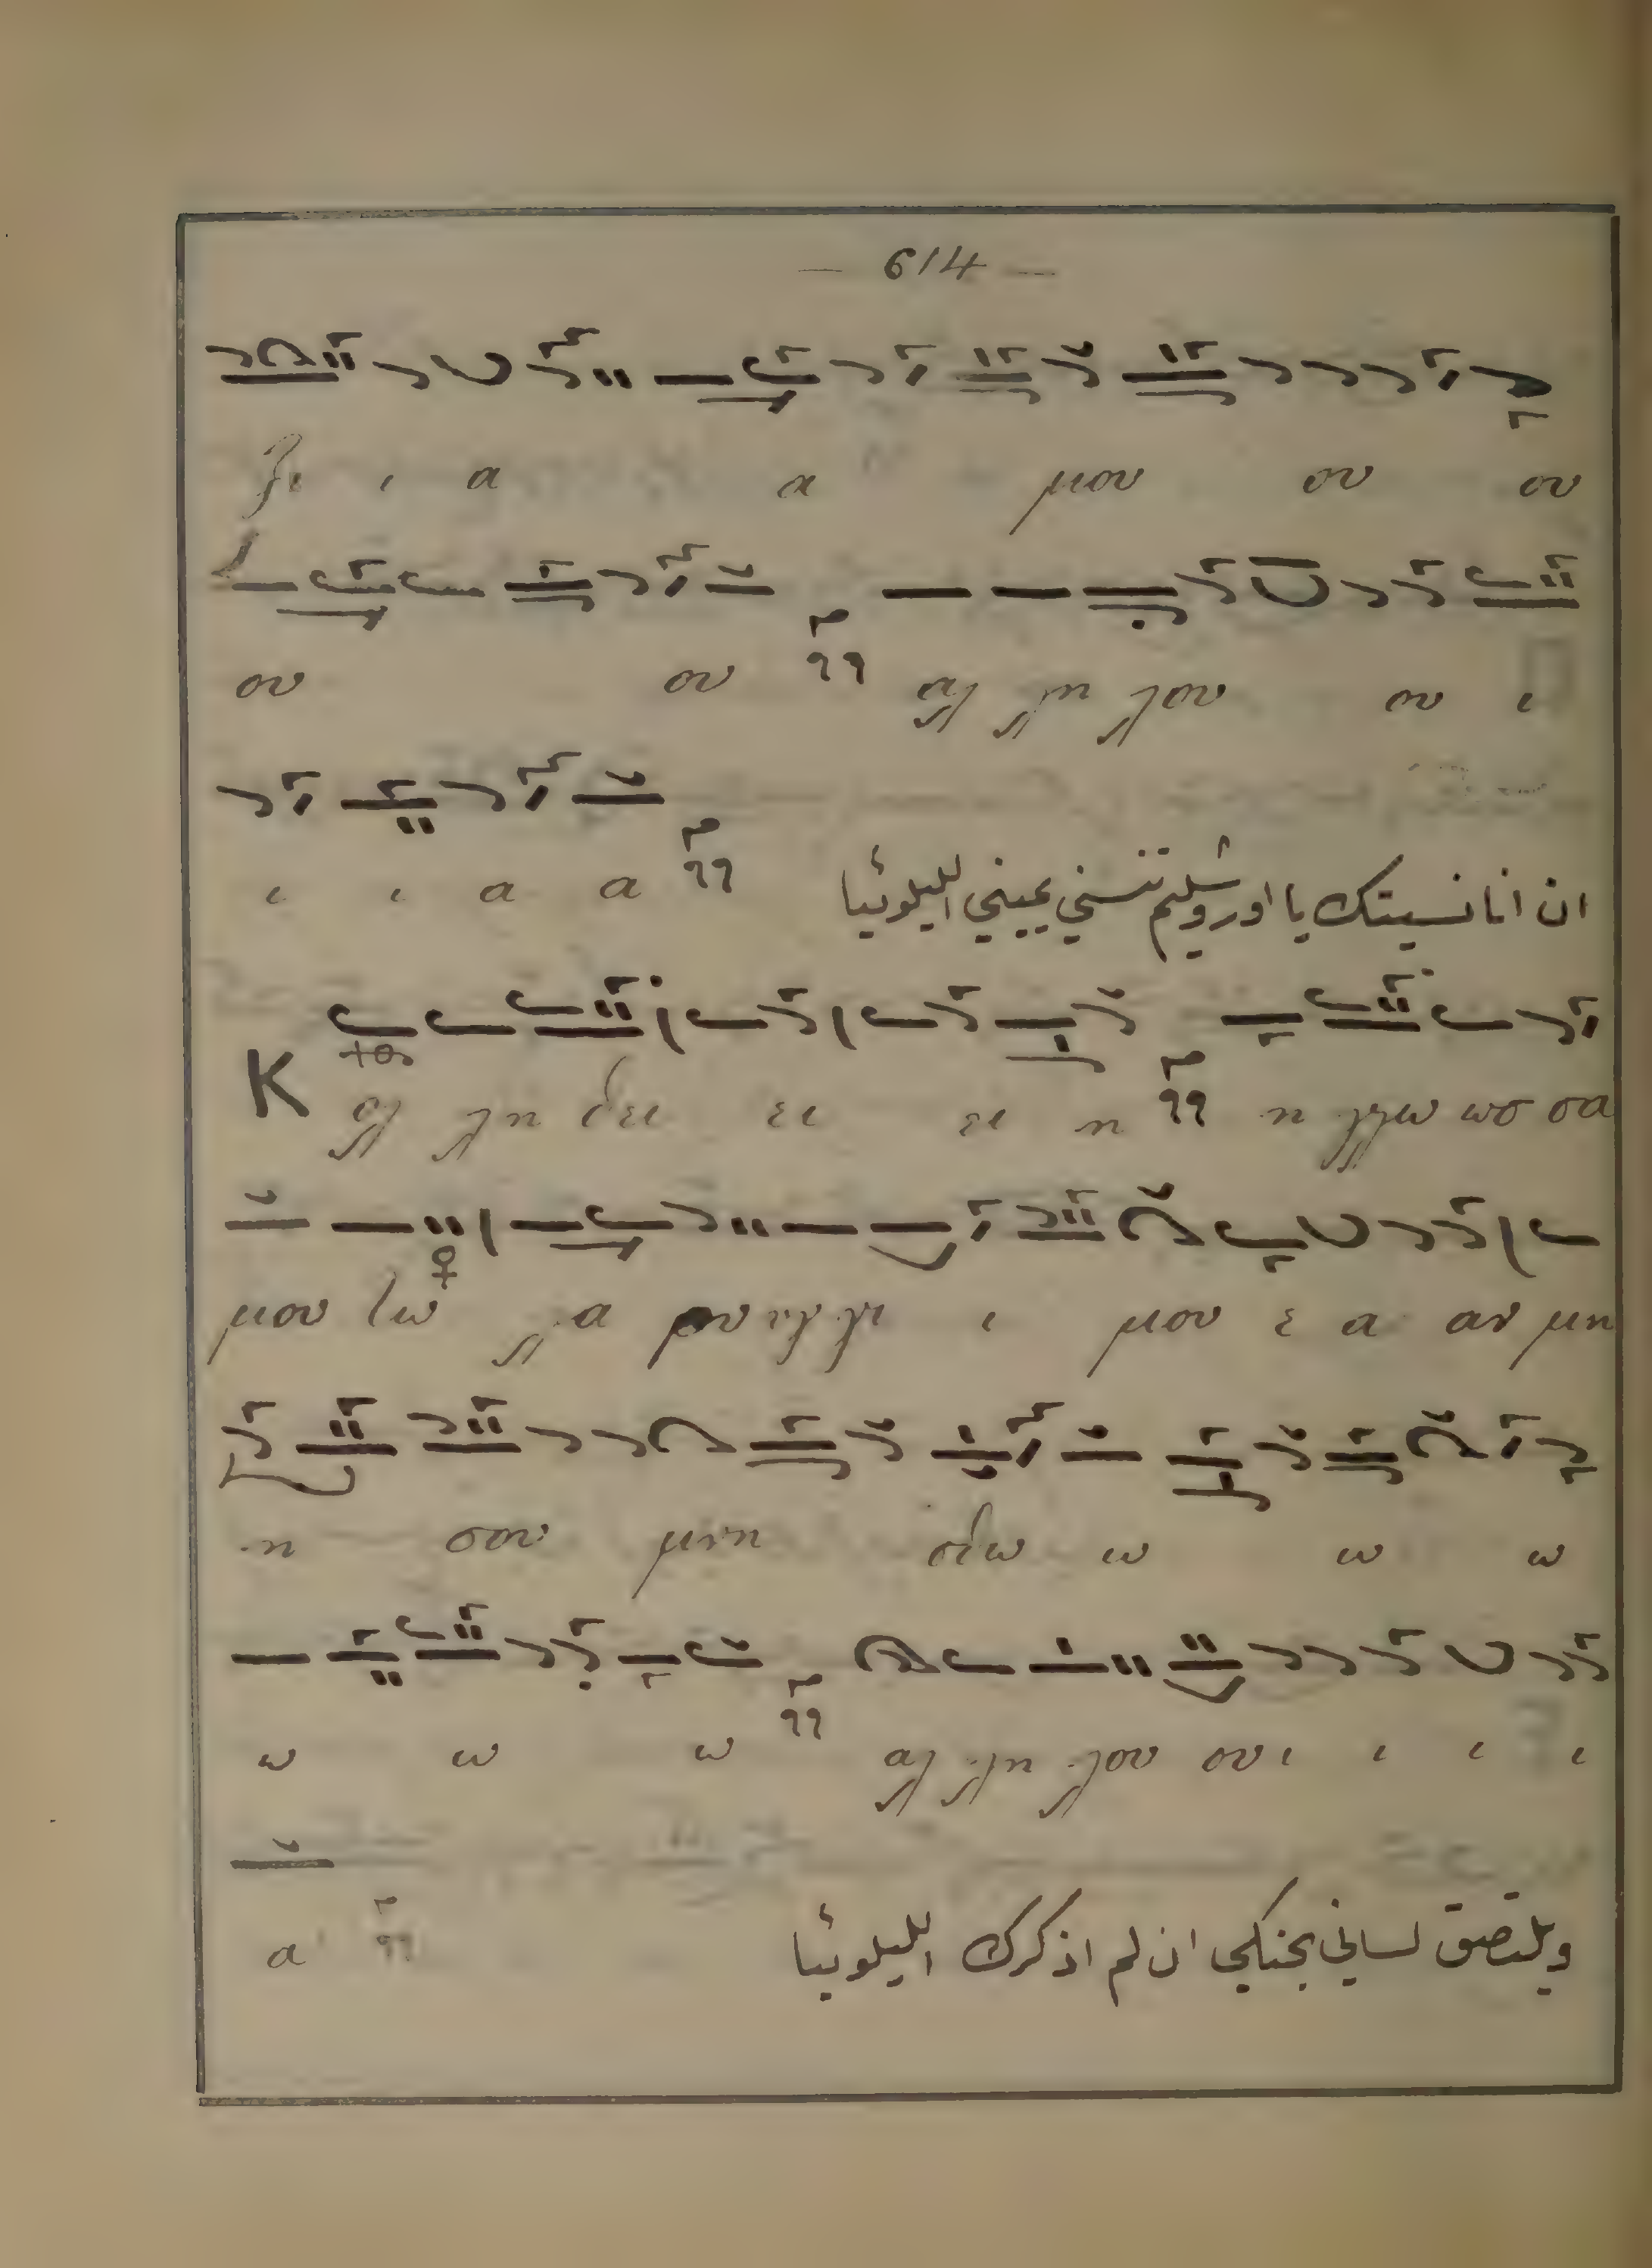 — 614 —
ξι ι α α μου ου ου
ου ου αλ λη λου ου ι
ι ι α α
ان انا نسيتك يا اورشليم تنسني يميني الليلوئيا
Κ ολ λη θει ει ει η η γλω ωσ σα
μου τω λα ρυγ γι ι μου ε α αν μη
η σου μνη σθω ω ω ω
ω ω ω αλ λη λου ου ι ι ι ι
α
ويلتصق لساني بحنكي ان لم اذكرك الليلوئيا